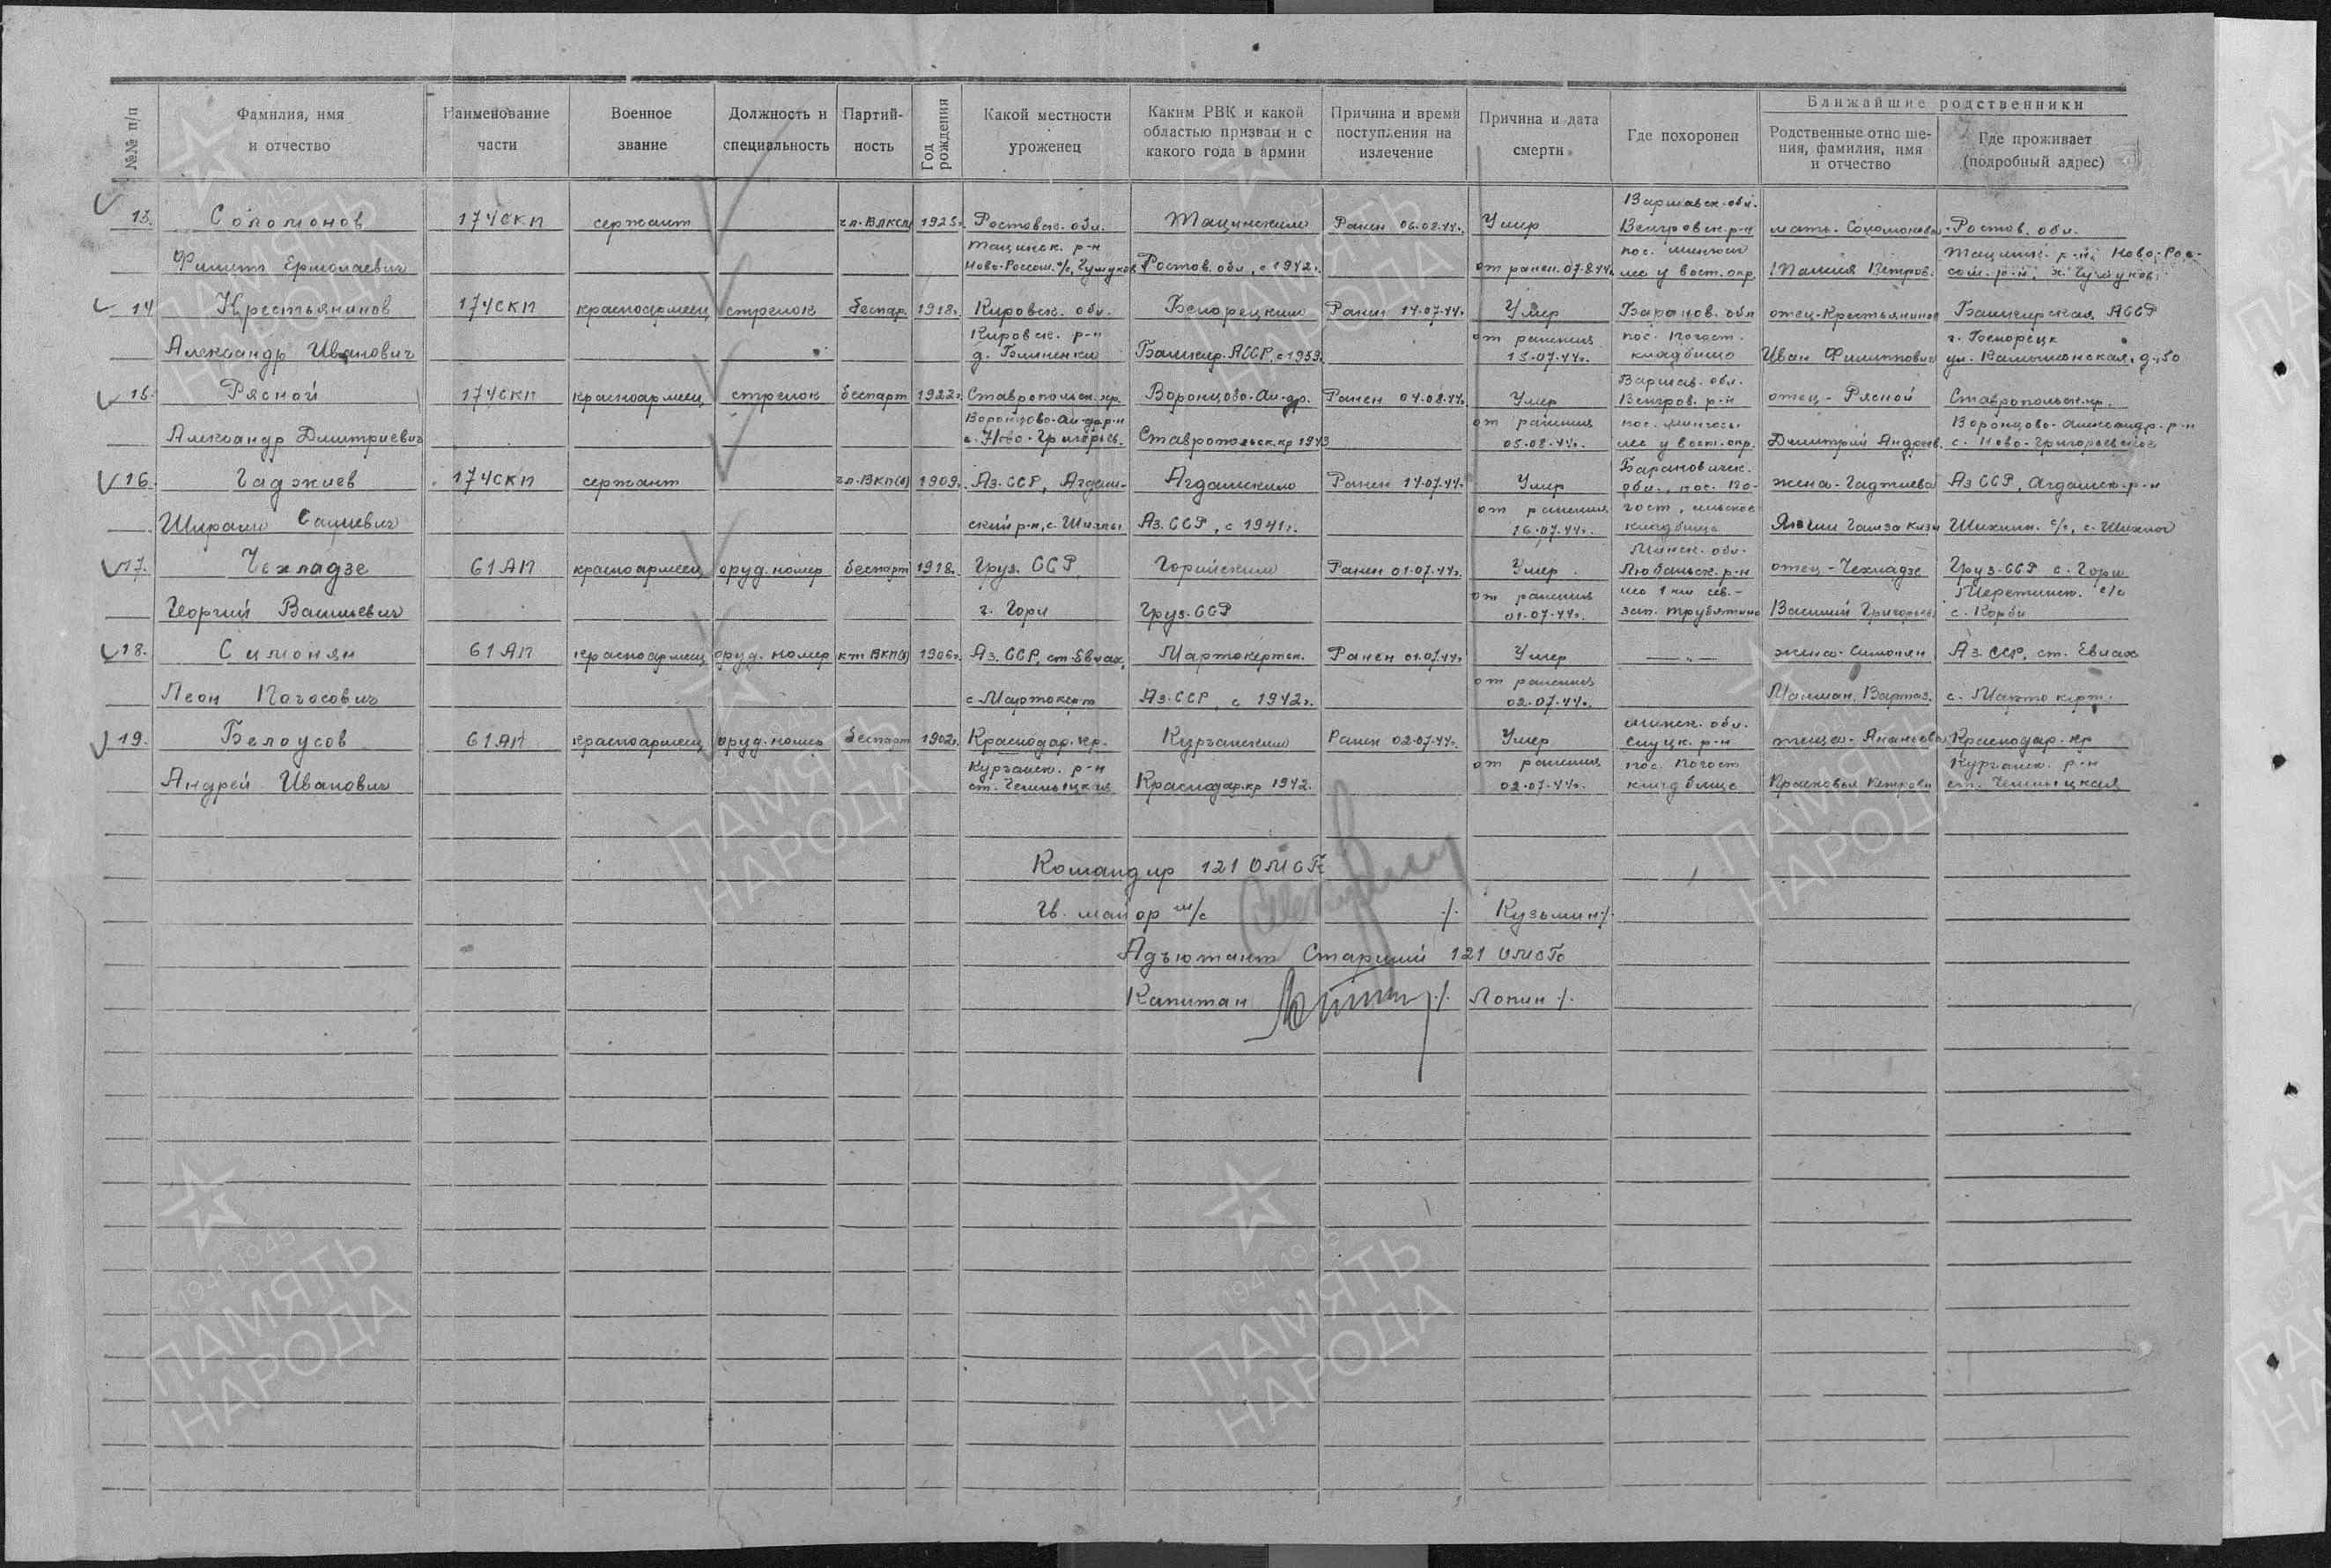 №№ п/п
Фамилия, имя и отчество
Наименование части
Военное звание
Должность и специальность
Партийность
Год рождения
Какой местности уроженец
Каким РВК и какой областью призван и с какого года в армии
Причина и время поступления на излечение
Причина и дата смерти
Где похоронен
Ближайшие родственники
Родственные отношения, фамилия, имя и отчество
Где проживает (подробный адрес)
13. Соломонов 174 СКП сержант чл. ВЛКСМ 1925г. Ростовск. обл. Тацинским Ранен 06.08.44г. Умер Варшавск. обл. Венгровск. р-н мать - Соломонова Ростов. обл.
Филипп Ермолаевич Тацинск. р-н Ново-Россош. с/с, Ростов. обл., с 1942г. от ранен. 07.8.44г. пос. лес у вост. окр. Петров. Тацинск. р-н, Ново-Рос-
14 Крестьянинов 174 СКП красноармеец стрелок беспар. 1918г. Кировск. обл. Белорецким Ранен 14.07.44г. Умер Баранов. обл отец - Крестьянинов Башкирская АССР
Александр Иванович Кировск. р-н д. Башкир. АССР, с 1939г. от ранения 15.07.44г. пос. Погост. кладбище Иван Филиппович г. Белорецк ул. д. 50
15. Рясной 174 СКП красноармеец стрелок беспарт 1922г. Ставропольск. кр. Воронцово-Ал-др. Ранен 04.08.44г. Умер Варшав. обл. Венгров. р-н отец - Рясной Ставропольск. кр.
Александр Дмитриевич Воронцово-Ал-др. р-н с. Ново-Григорьев. Ставропольск. кр 1943 от ранения 05.08.44г. пос. лес у вост. окр. Дмитрий Андреев. Воронцово-Александр. р-н с. Ново-Григорьевское
16. Гаджиев 174 СКП сержант чл. ВКП(б) 1909г. Аз. ССР, Агдаш- Агдашским Ранен 14.07.44г. Умер Барановичск. обл., пос. По- жена - Гаджиева Аз ССР, Агдашск. р-н
ский р-н, с. Аз. ССР, с 1941г. от ранения 16.07.44г. гост, сельское кладбище Гамза Кизи
17. Чехладзе 61 АП красноармеец оруд. номер беспарт 1918г. Груз. ССР Горийским Ранен 01.07.44г. Умер Минск. обл. Любаньск. р-н отец - Чехладзе Груз. ССР г. Гори
Георгий Васильевич г. Гори Груз. ССР от ранения 01.07.44г. лес 1 км сев.-зап. Василий Григорьев с/с
18. Симонян 61 АП красноармеец оруд. номер кт ВКП(б) 1906г. Аз. ССР, ст. Евлах, Мартокертск. Ранен 01.07.44г. Умер —„— жена - Симонян Аз. ССР, ст. Евлах
Леон Погосович с. Мартокерт Аз. ССР, с 1942г. от ранения 02.07.44г. с. Мартокерт.
19. Белоусов 61 АП красноармеец оруд. номер беспарт 1902г. Краснодар. кр. Курганским Ранен 02.07.44г. Умер Минск. обл. Слуцк. р-н Ананьева Краснодар. кр
Андрей Иванович Курганск. р-н ст. Чемлыцкая Краснодар. кр 1942. от ранения 02.07.44г. пос. Погост кладбище Прасковья Петровн Курганск. р-н ст. Чемлыцкая
Командир 121 ОМСБ
Гв. майор м/с ./. Кузьмин ./.
Адъютант Старший 121 ОМСБ
Капитан ./. Лопин ./.
1941 1945
ПАМЯТЬ
НАРОДА